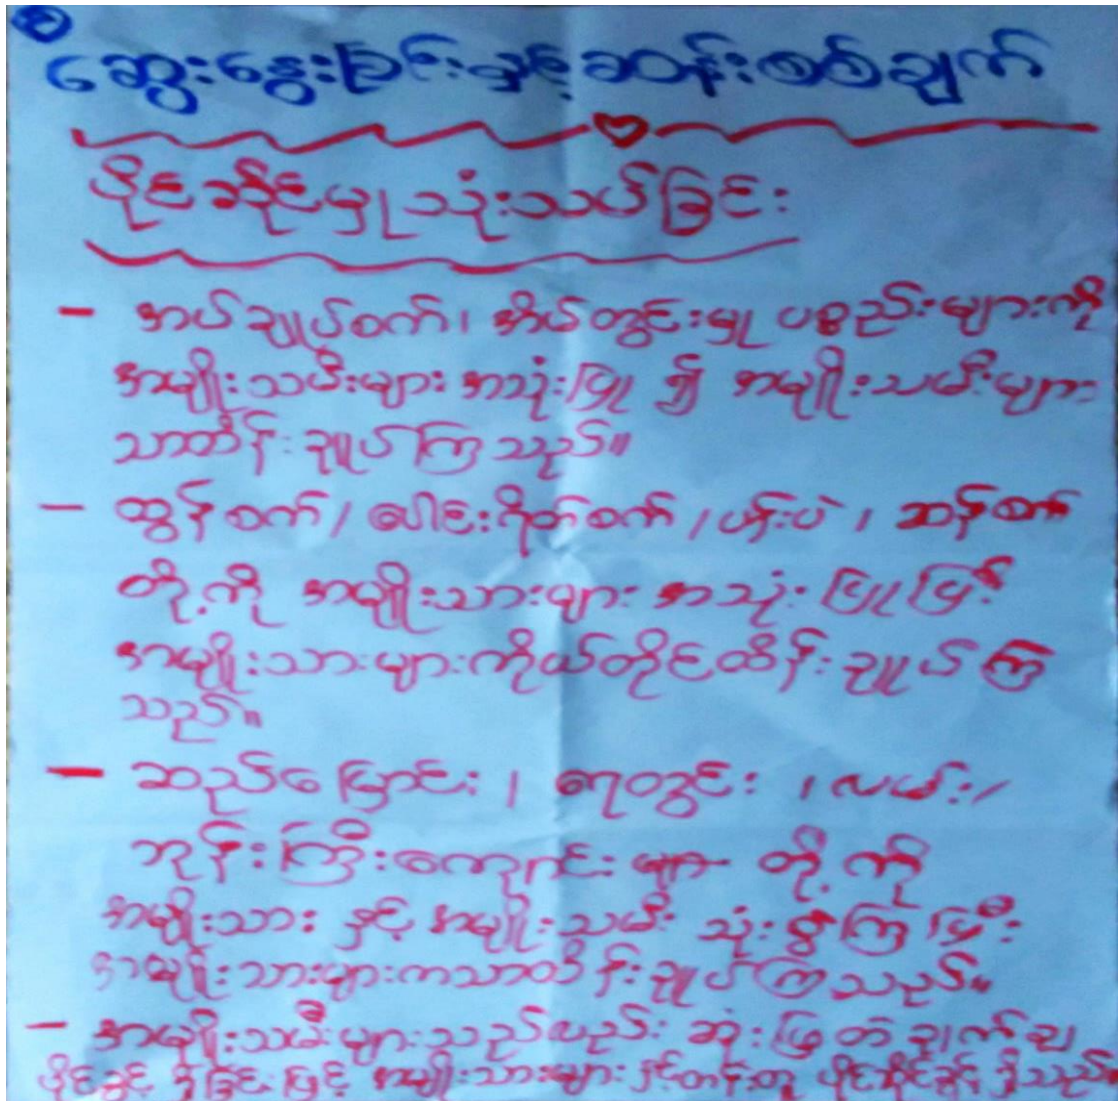 ၁
ဆွေးနွေးခြင်းနှင့်ဆန်းစစ်ချက်
ပိုင်ဆိုင်မှုသုံးသပ်ခြင်း
- အပ်ချုပ်စက်၊ အိမ်တွင်းမှု ပစ္စည်းများကို
အမျိုးသမီးများ အသုံးပြု ၍ အမျိုးသမီးများ
သာထိန်းချုပ်ကြသည်။
- ထွန်စက်/ ပေါင်းရိတ်စက် / ပန်းပဲ ၊ ဆန်စက်
တို့ကို အမျိုးသားများ အသုံးပြုပြီး
အမျိုးသားများကိုယ်တိုင်ထိန်းချုပ်ကြ
သည်။
- ဆည်မြောင်း / ရေတွင်း ၊ လမ်း /
ဘုန်းကြီးကျောင်းများ တို့ကို
အမျိုးသား နှင့် အမျိုးသမီး သုံးစွဲကြပြီး
အမျိုးသားများကသာထိန်းချုပ်ကြသည်။
- အမျိုးသမီးများသည်လည်း ဆုံးဖြတ်ချက်ချ
ပိုင်ခွင့် ရှိခြင်းဖြင့် အမျိုးသားများနှင့်တန်းတူ ပိုင်ဆိုင်ခွင့် ရှိသည်။